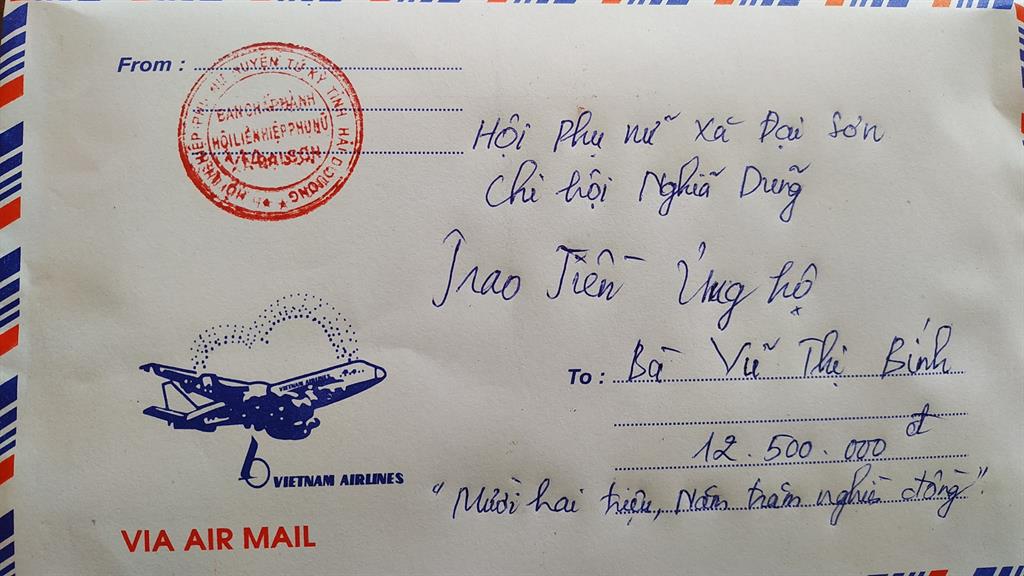 From :
HỘI LIÊN HIỆP PHỤ NỮ HUYỆN TỨ KỲ TỈNH HẢI DƯƠNG
BAN CHẤP HÀNH
HỘI LIÊN HIỆP PHỤ NỮ
XÃ ĐẠI SƠN
Hội phụ nữ xã Đại Sơn
Chi hội Nghĩa Dũng
Trao Tiền Ủng hộ
To : Bà Vũ Thị Bính
12.500.000 đ
"Mười hai triệu, Năm trăm nghìn đồng".
VIETNAM AIRLINES
VIETNAM AIRLINES
VIA AIR MAIL